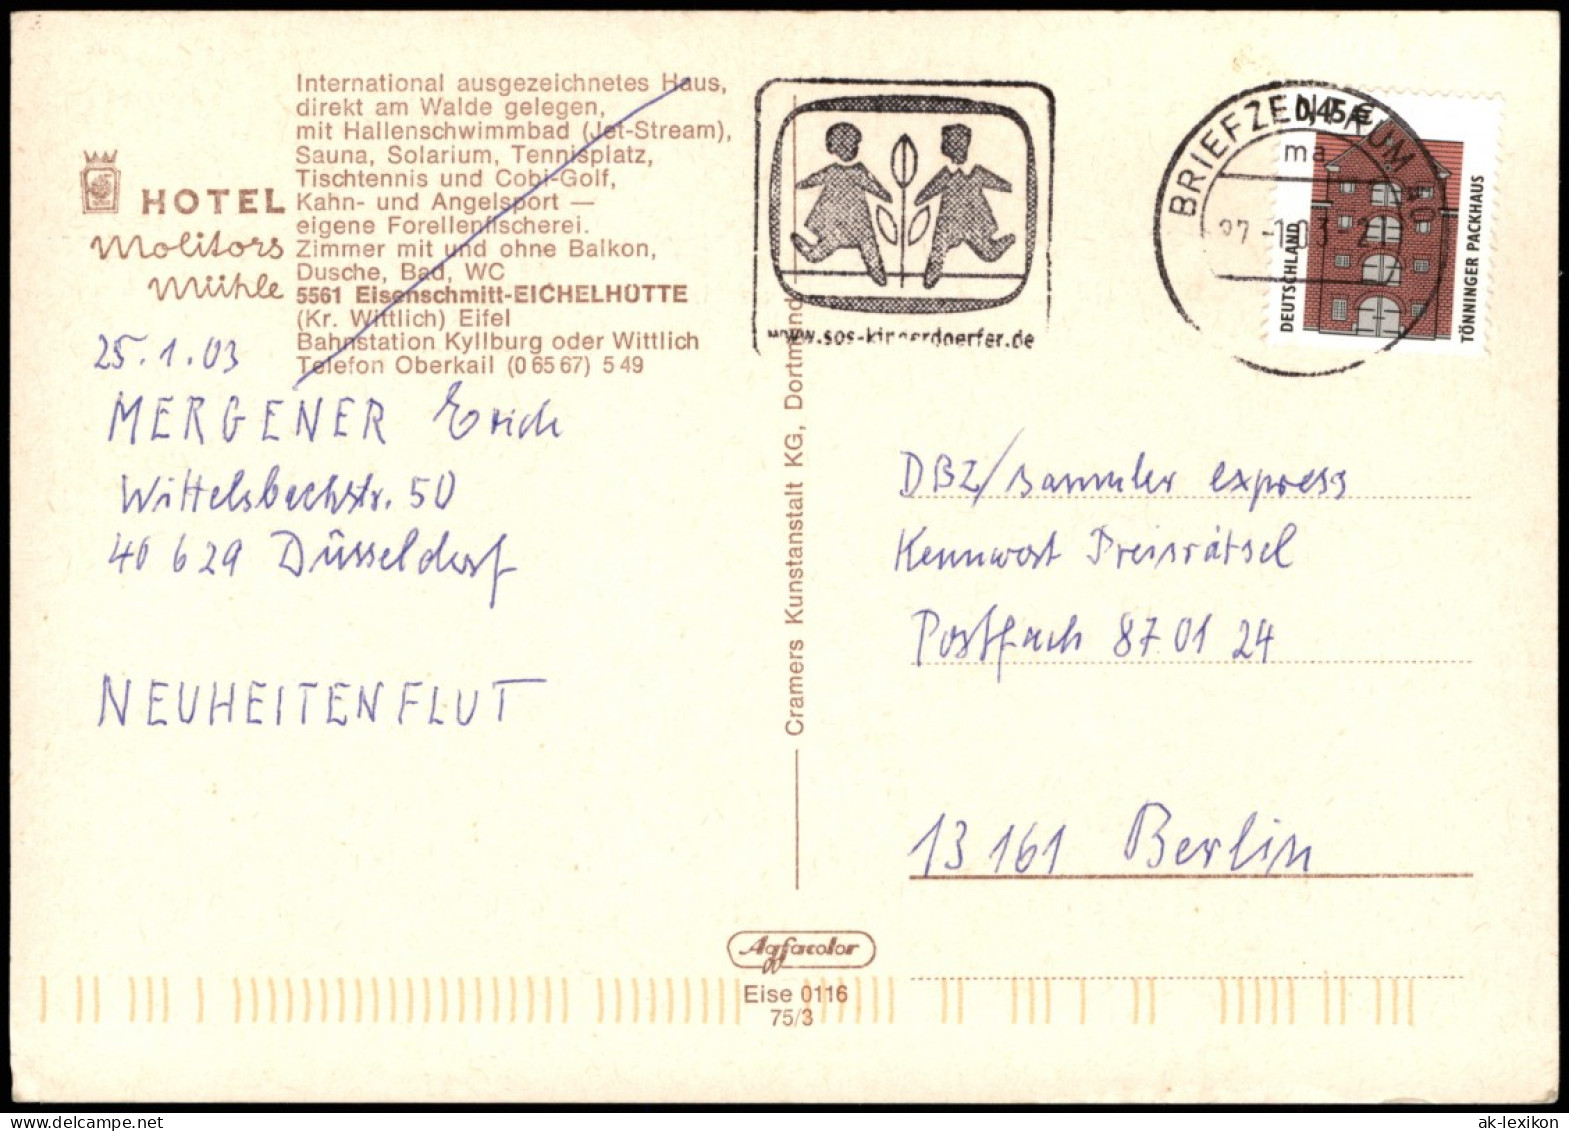 International ausgezeichnetes Haus,
direkt am Walde gelegen,
mit Hallenschwimmbad (Jet-Stream),
Sauna, Solarium, Tennisplatz,
Tischtennis und Cobi-Golf,
Kahn- und Angelsport —
eigene Forellenfischerei.
Zimmer mit und ohne Balkon,
Dusche, Bad, WC
5561 Eisenschmitt-EICHELHÜTTE
(Kr. Wittlich) Eifel
Bahnstation Kyllburg oder Wittlich
Telefon Oberkail (0 65 67) 5 49
HOTEL
Molitors
Mühle
25.1.03
MERGENER Erich
Wittelsbachstr. 50
40 629 Düsseldorf
NEUHEITENFLUT
Cramers Kunstanstalt KG, Dortmund
www.sos-kinderdoerfer.de
BRIEFZENTRUM 40
ma
27.-1.03-21
0,45 €
DEUTSCHLAND
TÖNNINGER PACKHAUS
DBZ/sammler express
Kennwort Preisrätsel
Postfach 87 01 24
13 161 Berlin
Agfacolor
Eise 0116
75/3
ak-lexikon.com